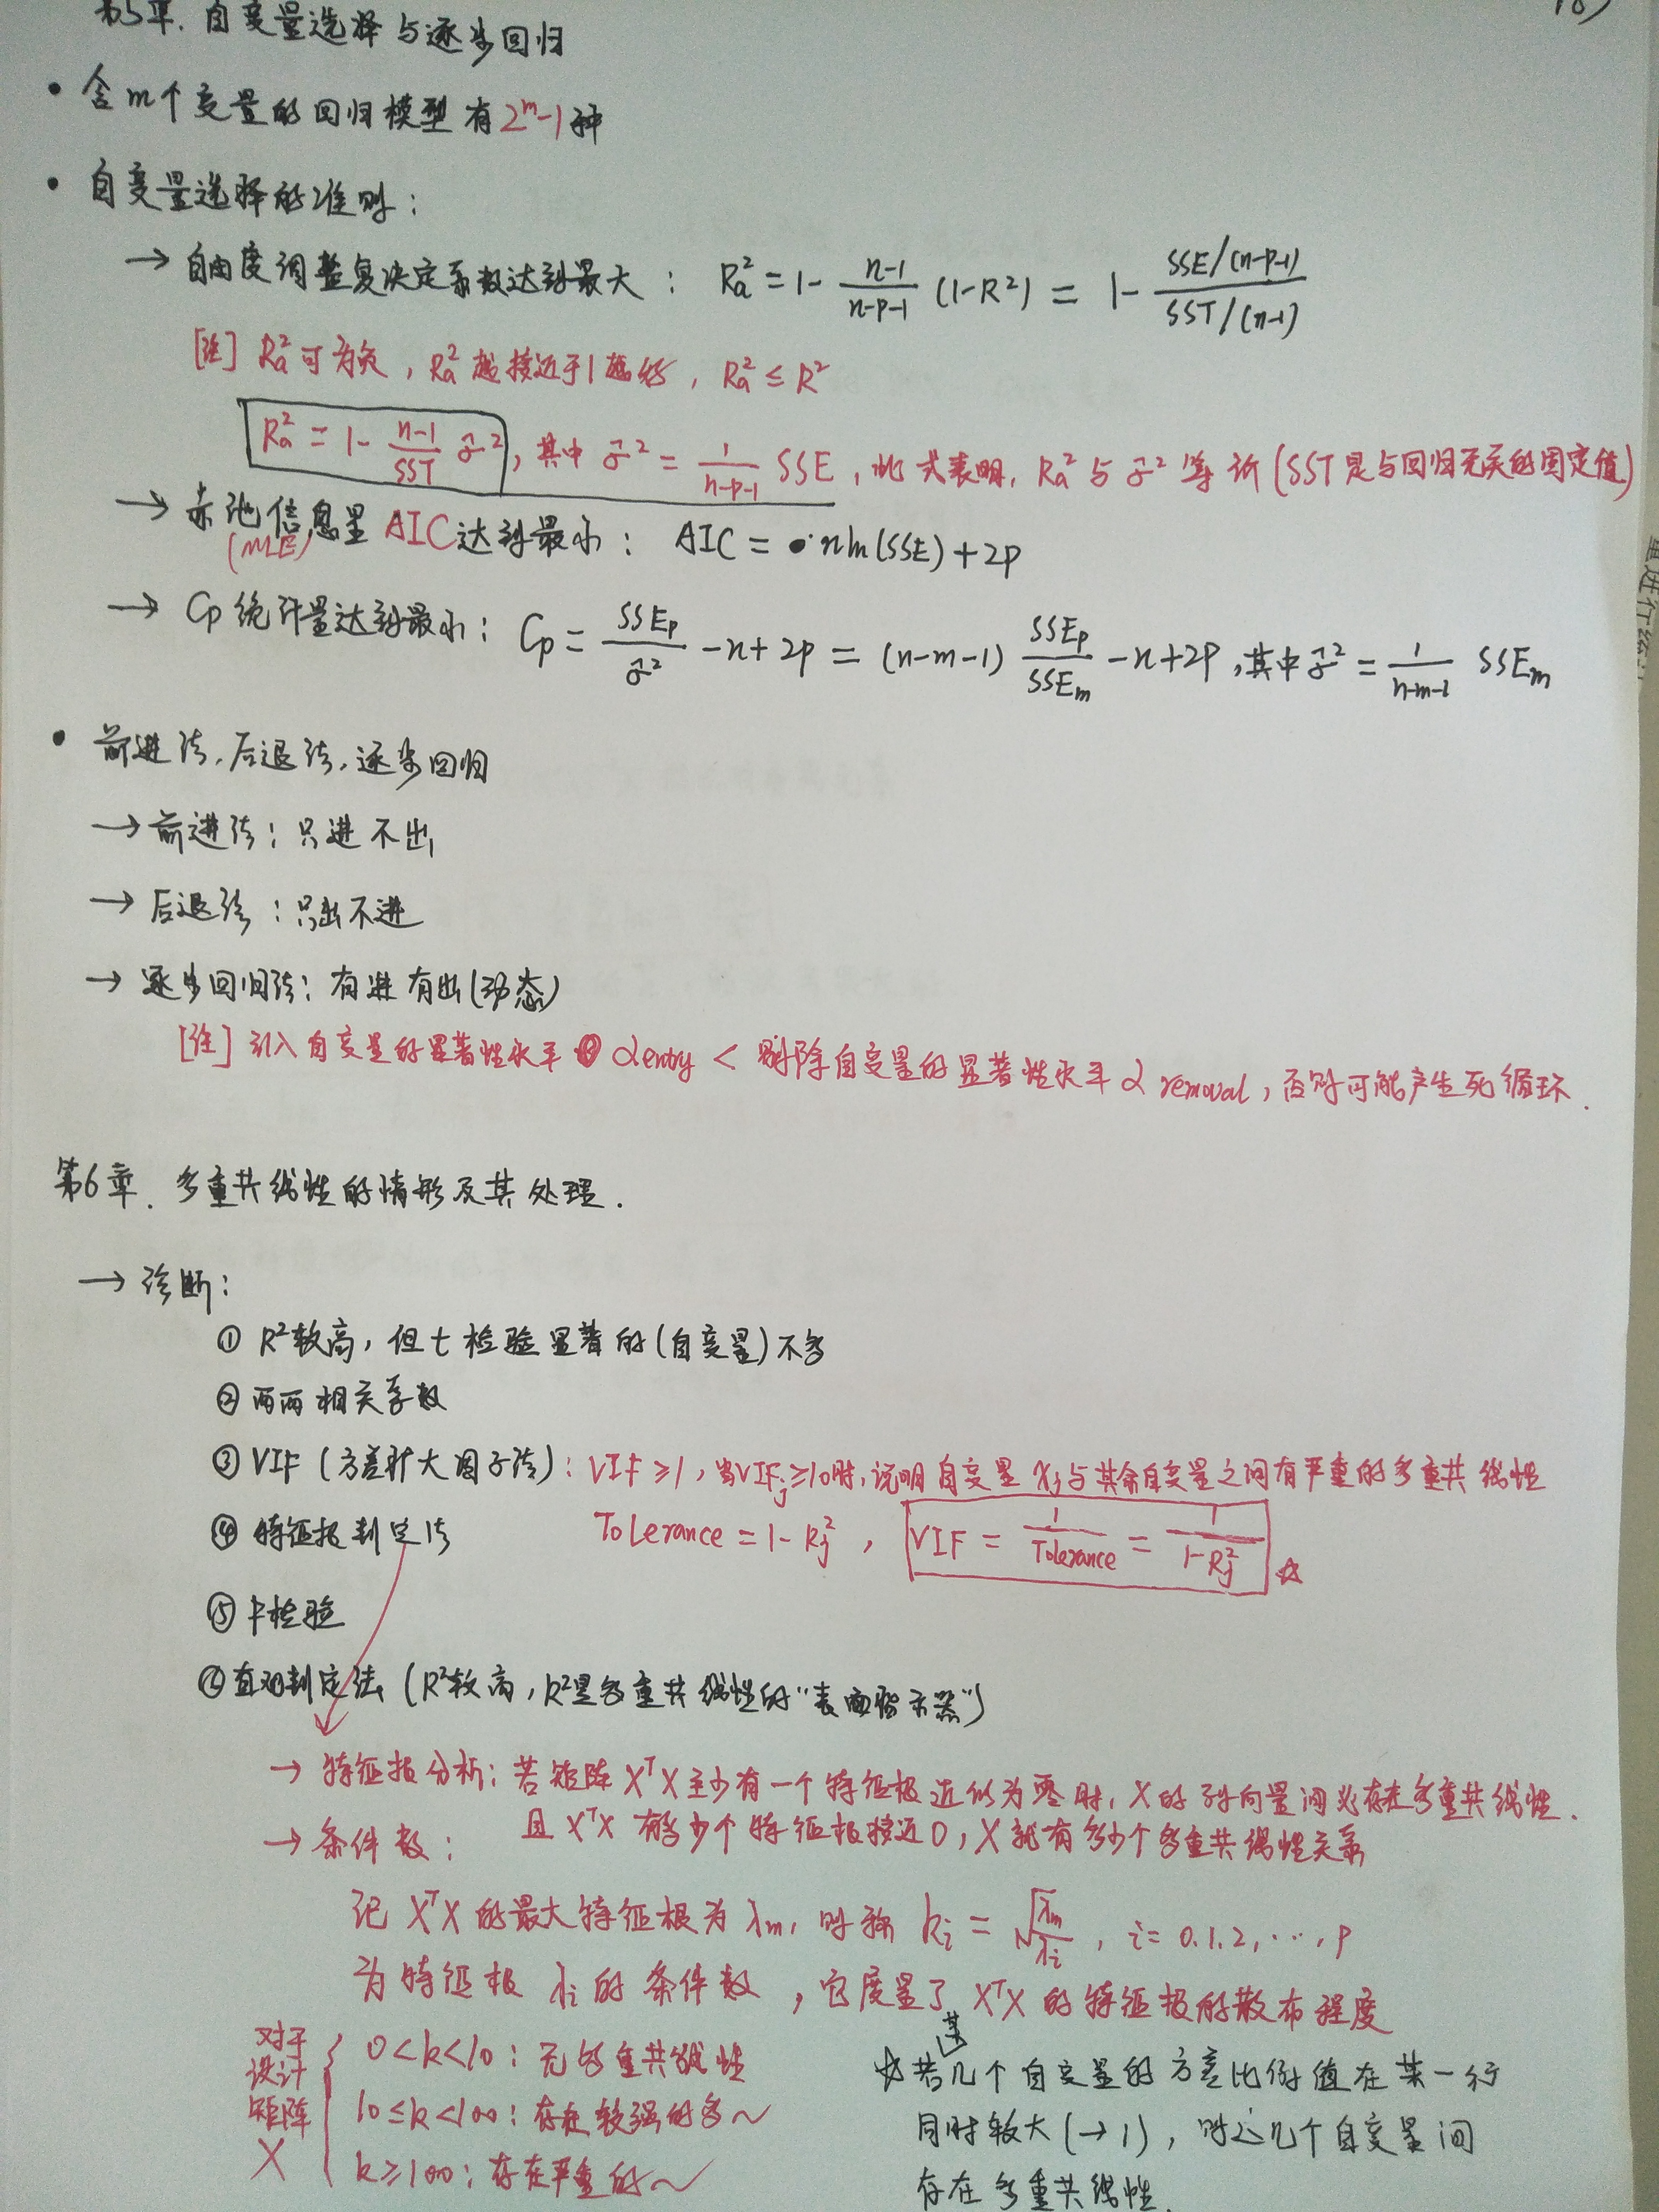 第5章. 自变量选择与逐步回归
• 含m个变量的回归模型有2^m-1种
• 自变量选择的准则:
→ 自由度调整复决定系数达到最大: Ra² = 1 - (n-1)/(n-p-1) (1-R²) = 1 - [SSE/(n-p-1)]/[SST/(n-1)]
[注] Ra²可为负, Ra²越接近于1越好, Ra² ≤ R²
Ra² = 1 - (n-1)/SST σ̂², 其中 σ̂² = 1/(n-p-1) SSE, 此式表明, Ra²与σ̂²等价(SST是与回归无关的固定值)
→ 赤池信息量AIC达到最小: AIC = nln(SSE)+2p
(MLE)
→ Cp统计量达到最小: Cp = SSEp/σ̂² - n + 2p = (n-m-1) SSEp/SSEm - n + 2p, 其中 σ̂² = 1/(n-m-1) SSEm
• 前进法, 后退法, 逐步回归
→ 前进法: 只进不出
→ 后退法: 只出不进
→ 逐步回归法: 有进有出(动态)
[注] 引入自变量的显著性水平 α entry < 剔除自变量的显著性水平 α removal, 否则可能产生死循环.
第6章. 多重共线性的情形及其处理.
→ 诊断:
① R²较高, 但t检验显著的(自变量)不多
② 两两相关系数
③ VIF (方差扩大因子法): VIF ≥ 1, 当VIFj ≥ 10时, 说明自变量xj与其余自变量之间有严重的多重共线性
④ 特征根判定法 Tolerance = 1 - Rj², VIF = 1/Tolerance = 1/(1-Rj²) ☆
⑤ F检验
⑥ 直观判定法 (R²较高, R²是多重共线性的"表面指示器")
→ 特征根分析: 若矩阵XᵀX至少有一个特征根近似为零时, X的列向量间必存在多重共线性.
且XᵀX有多少个特征根接近0, X就有多少个多重共线性关系
→ 条件数:
记XᵀX的最大特征根为λm, 则称 ki = √(λm/λi), i = 0.1.2, ⋯, p
为特征根λi的条件数, 它度量了XᵀX的特征根的散布程度
对于设计矩阵X
0<k<10: 无多重共线性
10≤k<100: 存在较强的多~
k≥100: 存在严重的~
☆若某几个自变量的方差比例值在某一行
同时较大(→1), 则这几个自变量间
存在多重共线性.